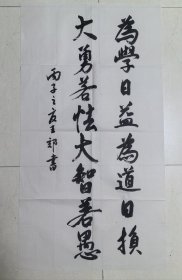 為學日益為道日損
大勇若怯大智若愚
丙子之夏王郑書